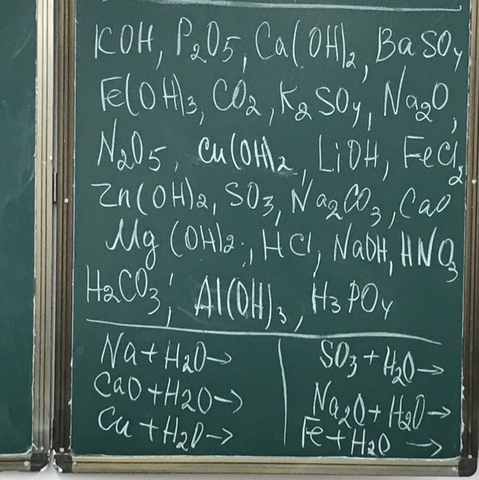 KOH, P₂O₅, Ca(OH)₂, BaSO₄
Fe(OH)₃, CO₂, K₂SO₄, Na₂O,
N₂O₅, Cu(OH)₂, LiOH, FeCl₂
Zn(OH)₂, SO₃, Na₂CO₃, CaO
Mg(OH)₂, HCl, NaOH, HNO₃
H₂CO₃, Al(OH)₃, H₃PO₄
Na + H₂O →
CaO + H₂O →
Cu + H₂O →
SO₃ + H₂O →
Na₂O + H₂O →
Fe + H₂O →